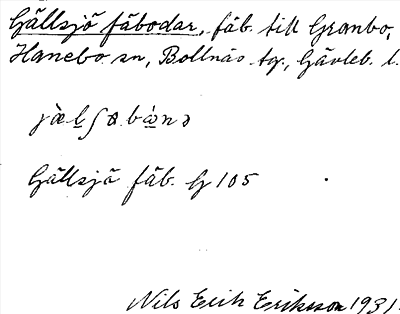 Gällsjö fäbodar, fäb. till Granbo,
Hanebo sn, Bollnäs tg., Gävleb. l.
jæ̀lʃɷbɷ̀nə
Gällsjö fäb. G 105
Nils Erik Eriksson 1931.